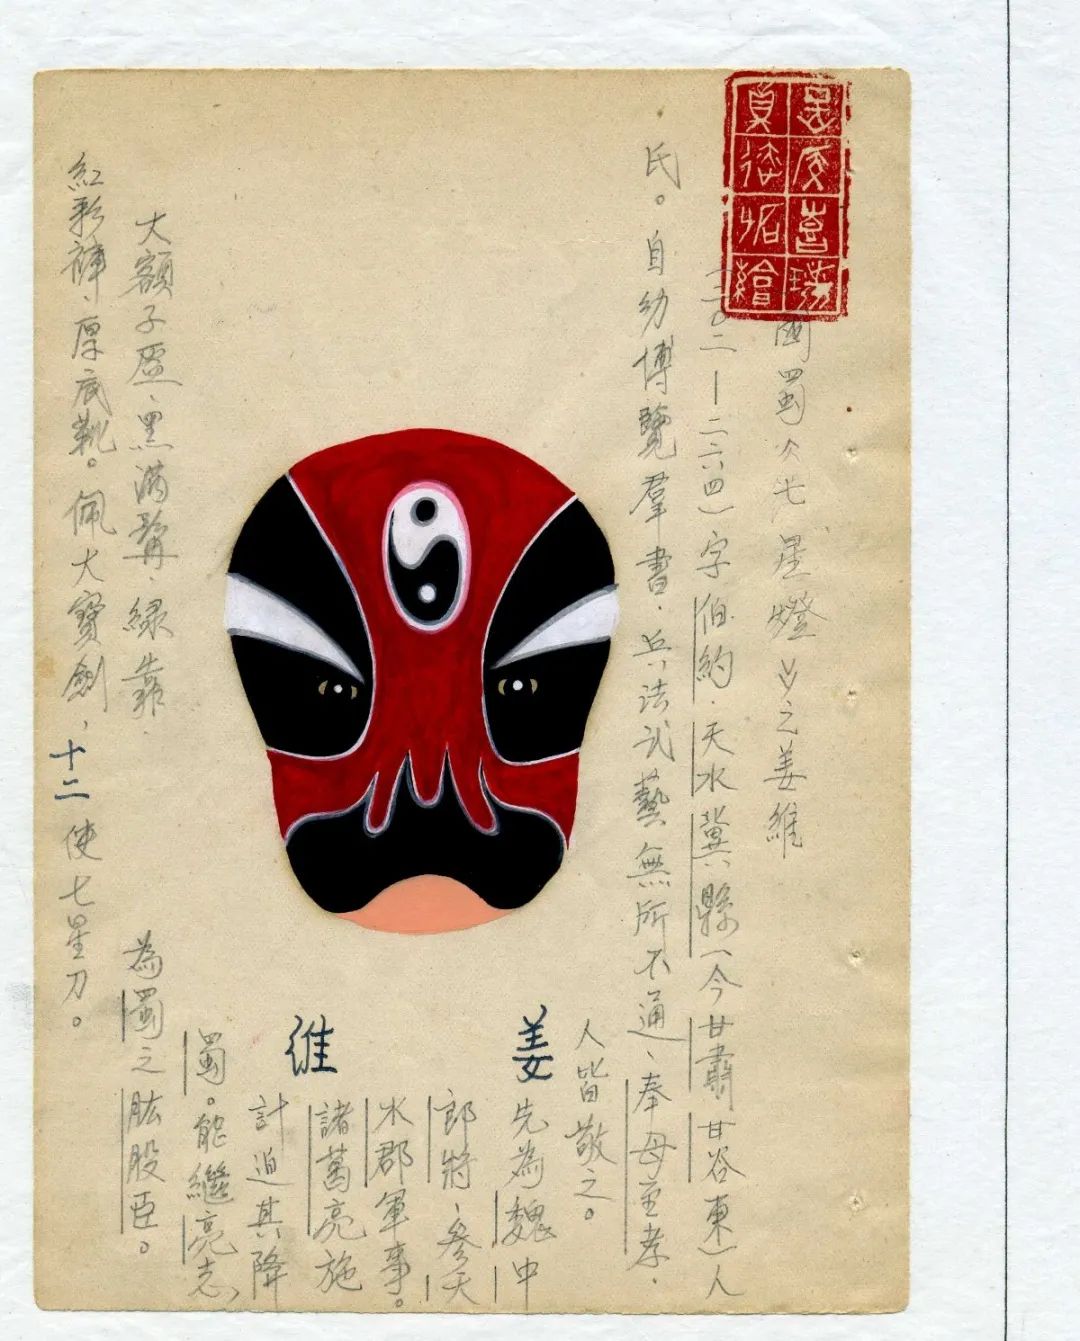 國蜀《七星燈》之姜維
二〇二—二六四）字伯約，天水冀縣（今甘肅甘谷東）人
氏。自幼博覽羣書，兵法武藝無所不通、奉母至孝，
人皆敬之。
姜
先為魏中
郎將、參天
水郡軍事。
諸葛亮施
維
計迫其降
蜀。能繼亮志、
為蜀之肱股臣。
大額子盔、黑滿髯、綠靠、
紅彩褲、厚底靴。佩大寶劍、
使七星刀。
十二